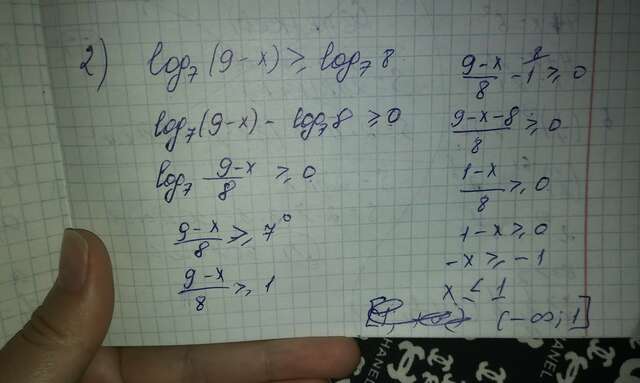 2) log₇(9-x) ≥ log₇8
log₇(9-x) - log₇8 ≥ 0
log₇ (9-x)/8 ≥ 0
(9-x)/8 ≥ 7⁰
(9-x)/8 ≥ 1
(9-x)/8 - 1 ≥ 0
(9-x-8)/8 ≥ 0
(1-x)/8 ≥ 0
1-x ≥ 0
-x ≥ -1
x ≤ 1
(-∞; 1]
CHANEL
CHANEL